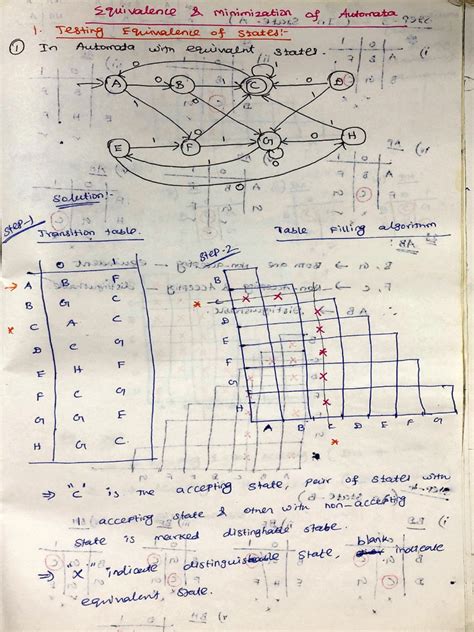 Equivalence & Minimization of Automata
1. Testing Equivalence of States:-
① In Automata with equivalent states.
A B C D
E F G H
0 1
Solution:-
Step-1 Transition table
Step-2 Table Filling algorithm
0 1
→ A B F
B G C
* C A C
D C G
E H F
F C G
G G E
H G C
B
* C
D
E
F
G
H
A B C D E F G
*
⇒ "C" is the accepting state, pair of states with
accepting state & other with non-accepting
state is marked distinghable state.
⇒ "X" indicate distinguistable state, blanks indicate
equivalent state.